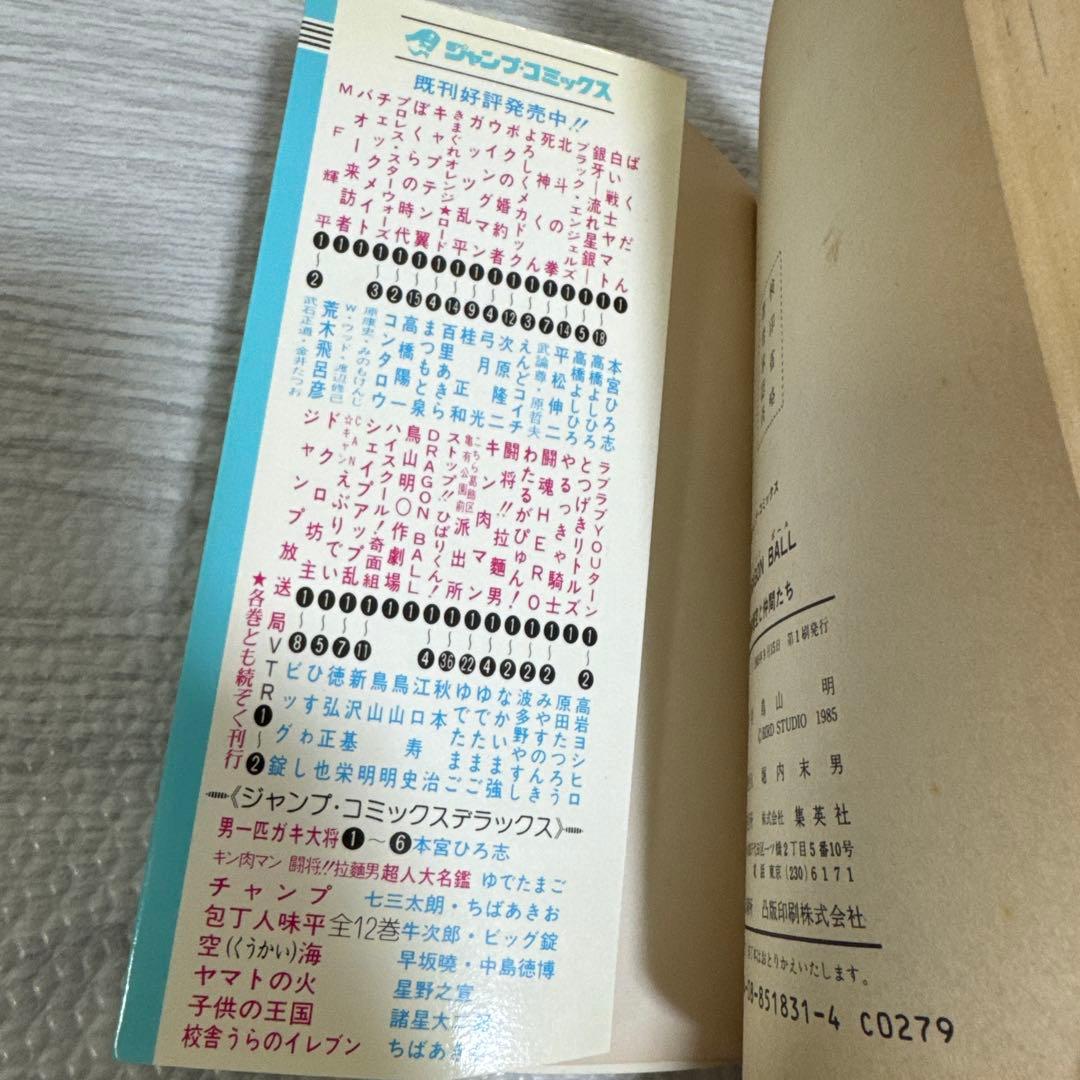 ジャンプ・コミックス
既刊好評発売中!!
ばくだん ❶ 本宮ひろ志
白い戦士ヤマト ❶〜⓲ 高橋よしひろ
銀牙―流れ星銀― ❶〜❺ 高橋よしひろ
ブラック・エンジェルズ ❶〜⓮ 平松伸二
北斗の拳 ❶〜❼ 武論尊・原哲夫
死神くん ❶〜❸ えんどコイチ
よろしくメカドック ❶〜⓬ 次原隆二
ボクの婚約者 ❶〜❹ 弓月光
ウイングマン ❶〜❾ 桂正和
ガッツ乱平 ❶〜⓮ 百里あきら
きまぐれオレンジ★ロード ❶〜❹ まつもと泉
キャプテン翼 ❶〜⓯ 高橋陽一
ぼくらの時代 ❶〜❷ コンタロウ
プロレス・スターウォーズ ❶〜❸ 原康史・みのもけんじ
チェックメイト ❶ W・ウッド・渡辺修己
バオー来訪者 ❶ 荒木飛呂彦
M・F輝平 ❶〜❷ 武石正道・金井たつお
ラブラブYOUターン ❶〜❷ 高岩ヨシヒロ
とつげきリトルズ ❶ 原田たつろう
やるっきゃ騎士 ❶〜❷ みやすのんき
闘魂HERO ❶〜❷ 波多野やすし
わたるがぴゅん! ❶〜❷ なかいま強
闘将!!拉麵男 ❶〜❹ ゆでたまご
キン肉マン ❶〜22 ゆでたまご
こちら葛飾区亀有公園前派出所 ❶〜36 秋本治
ストップ!!ひばりくん! ❶〜❹ 江口寿史
DRAGON BALL ❶ 鳥山明
鳥山明○作劇場 ❶ 鳥山明
ハイスクール!奇面組 ❶〜⓫ 新沢基栄
シェイプアップ乱 ❶〜❼ 徳弘正也
CAN☆キャンえぶりでい ❶〜❺ ひすわし
ドクロ坊主 ❶〜❽ ビッグ錠
ジャンプ放送局VTR❶〜❷
★各巻とも続ぞく刊行
《ジャンプ・コミックスデラックス》
男一匹ガキ大将❶〜❻本宮ひろ志
キン肉マン 闘将!!拉麵男超人大名鑑 ゆでたまご
チャンプ 七三太朗・ちばあきお
包丁人味平全12巻牛次郎・ビッグ錠
空(くうかい)海 早坂暁・中島徳博
ヤマトの火 星野之宣
子供の王国 諸星大二郎
校舎うらのイレブン ちばあきお
コミックス
BALL
仲間たち
15日 第1刷発行
鳥山 明
©BIRD STUDIO 1985
堀内末男
株式会社 集英社
一ツ橋2丁目5番10号
電話 東京(230)6171
凸版印刷株式会社
はおとりかえいたします。
-08-851831-4 C0279